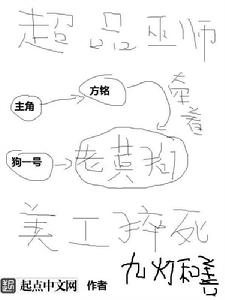 超品巫师
主角
方铭
牵着
狗一号
老黄狗
美工猝死
九灯和善
起点中文网 作者